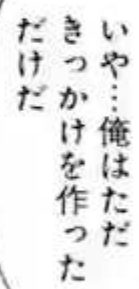 いや…俺はただ
きっかけを作った
だけだ